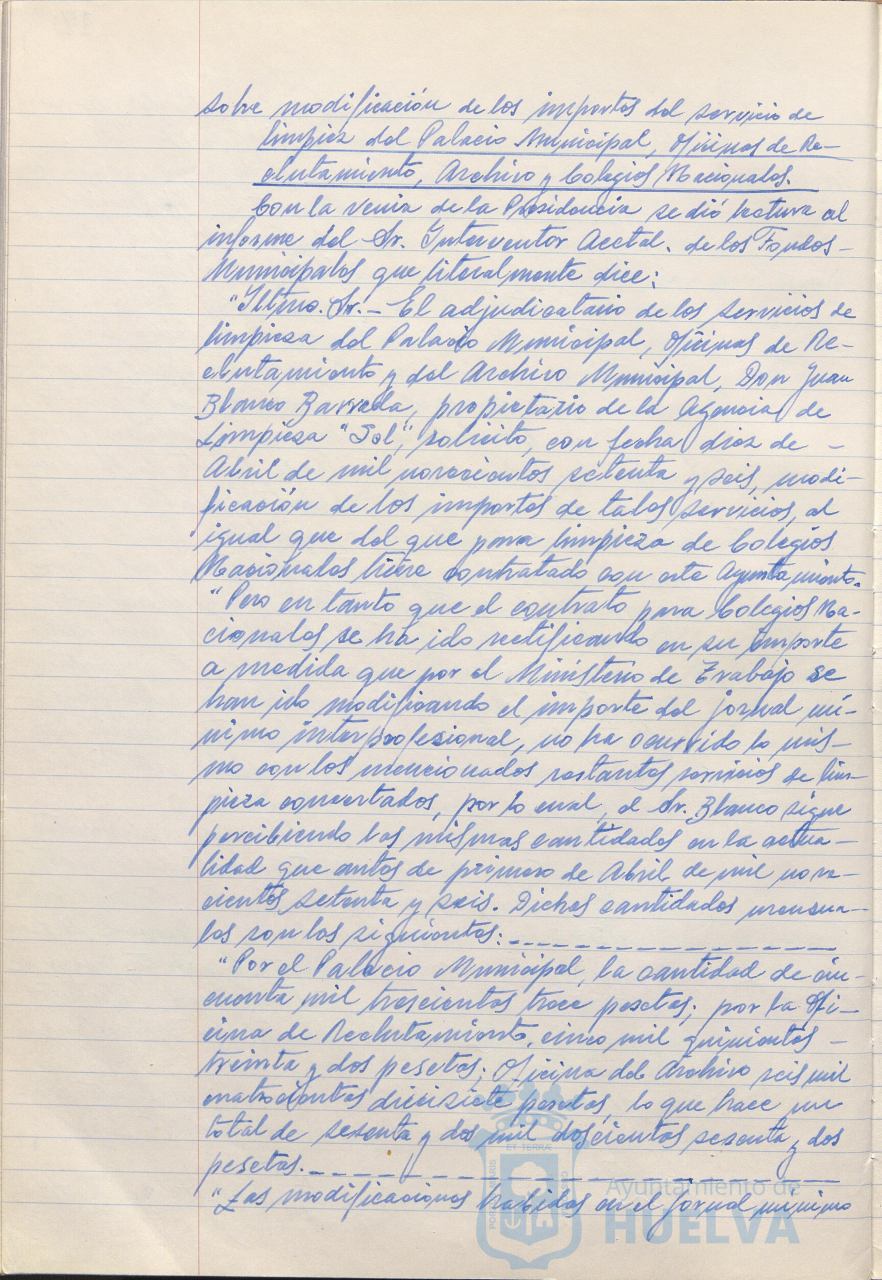 sobre modificación de los importes del servicio de
limpieza del Palacio Municipal, Oficinas de Re-
clutamiento, Archivo y Colegios Nacionales.
Con la venia de la Presidencia se dió lectura al
informe del Sr. Interventor Acctal. de los Fondos-
Municipales que literalmente dice:
"Iltmo. Sr.- El adjudicatario de los servicios de
limpieza del Palacio Municipal, Oficinas de Re-
clutamiento y del Archivo Municipal, Don Juan
Blanco Barreda, propietario de la Agencia de
Limpieza "Sol", solicitó, con fecha diez de -
Abril de mil novecientos setenta y seis, modi-
ficación de los importes de tales servicios, al
igual que del que para limpieza de Colegios
Nacionales tiene contratado con este Ayuntamiento.
"Pero en tanto que el contrato para Colegios Na-
cionales se ha ido rectificando en su importe
a medida que por el Ministerio de Trabajo se
han ido modificando el importe del jornal mí-
nimo interprofesional, no ha ocurrido lo mis-
mo con los mencionados restantes servicios de lim-
pieza concertados, por lo cual, el Sr. Blanco sigue
percibiendo las mismas cantidades en la actua-
lidad que antes de primero de Abril de mil nove-
cientos setenta y seis. Dichas cantidades mensua-
les son las siguientes:-----------------
"Por el Palacio Municipal, la cantidad de cin-
cuenta mil trescientas trece pesetas; por la Ofi-
cina de Reclutamiento, cinco mil quinientas -
treinta y dos pesetas; Oficina del Archivo seis mil
cuatrocientas diecisiete pesetas, lo que hace un
total de sesenta y dos mil doscientas sesenta y dos
pesetas.-----------------
"Las modificaciones habidas en el jornal mínimo
ET TERRAE
Ayuntamiento de
HUELVA